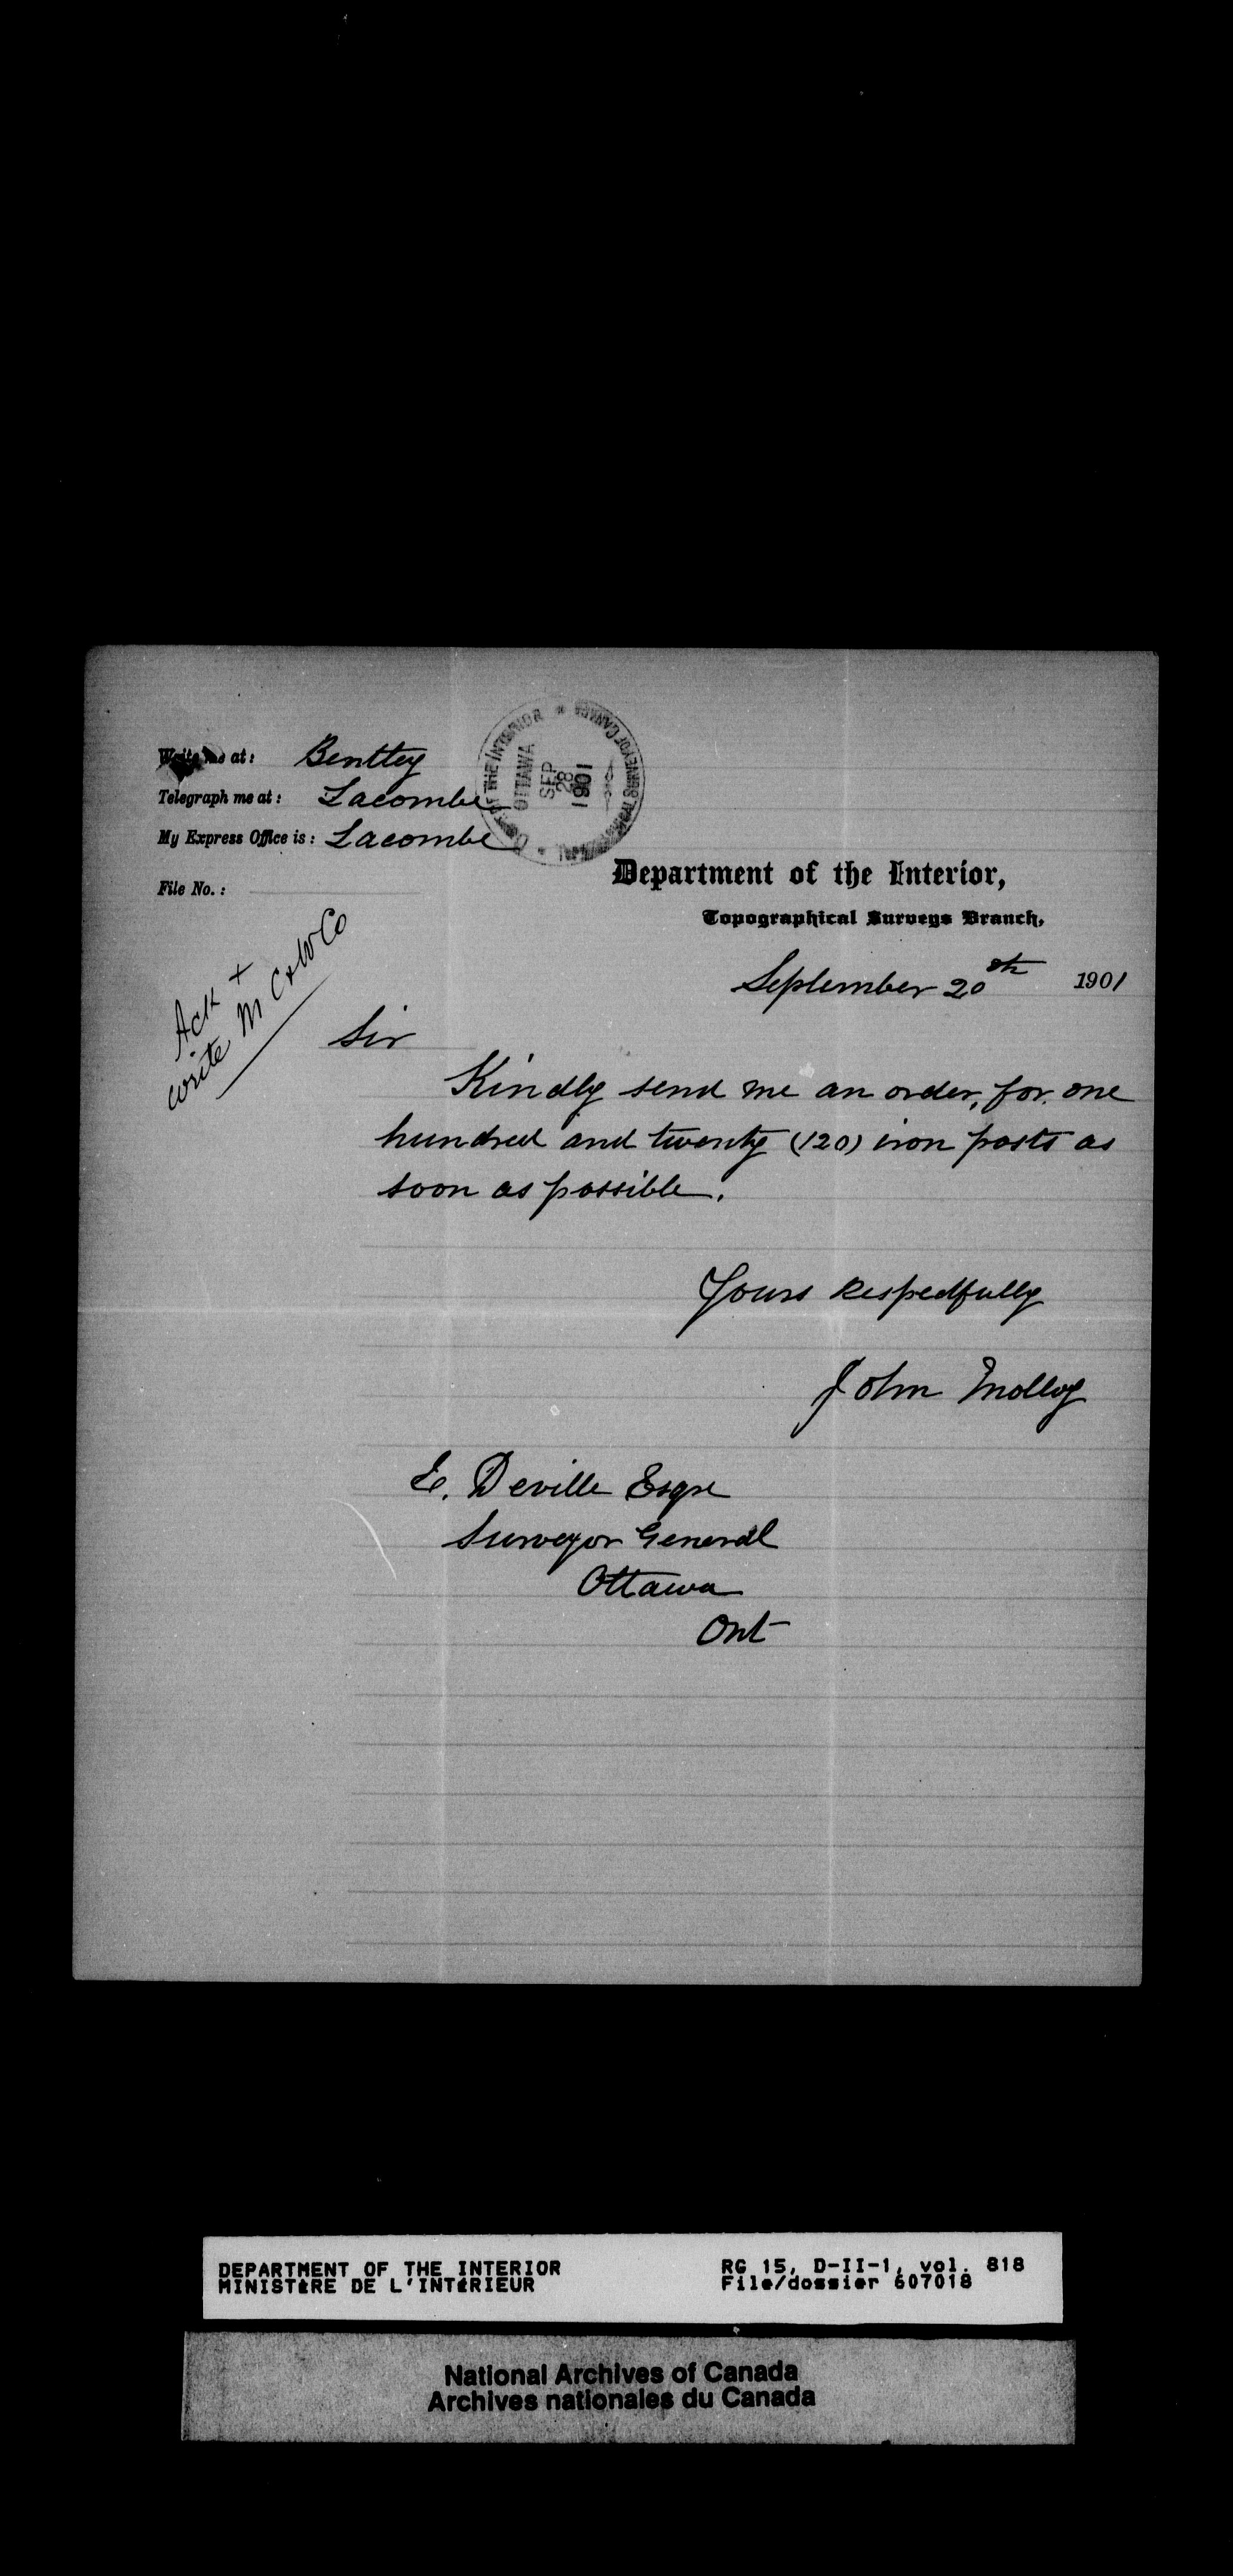 Write me at: Benttey
Telegraph me at: Lacombe
My Express Office is: Lacombe
File No.:
THE INTERIOR
OTTAWA
SEP
28
1901
SURVEYS OF CANADA
Department of the Interior,
Topographical Surveys Branch,
September 20th 1901
Ack +
write M C & W Co
Sir
Kindly send me an order, for one
hundred and twenty (120) iron posts as
soon as possible.
Yours Respectfully
John Molloy
E. Deville Esqre
Surveyor General
Ottawa
Ont
DEPARTMENT OF THE INTERIOR
MINISTÈRE DE L'INTÉRIEUR
RG 15, D-II-1, vol. 818
File/dossier 607018
National Archives of Canada
Archives nationales du Canada